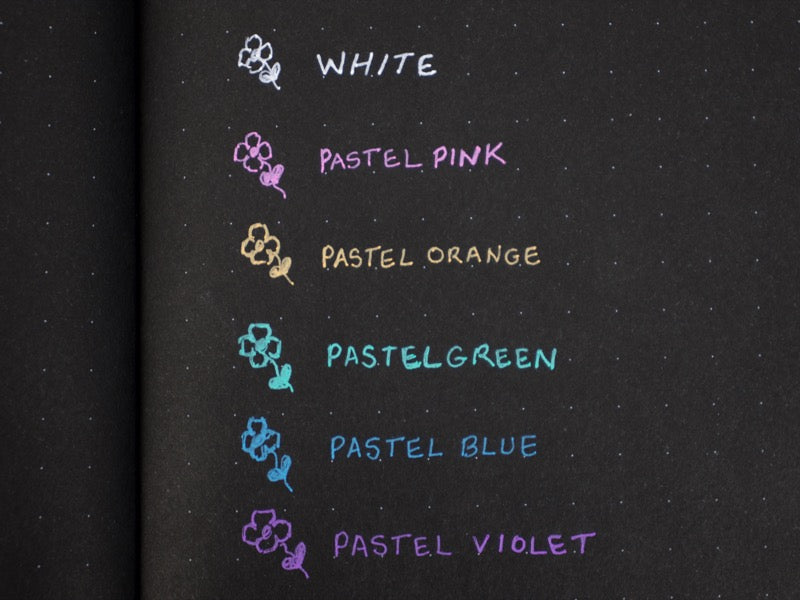 WHITE
PASTEL PINK
PASTEL ORANGE
PASTEL GREEN
PASTEL BLUE
PASTEL VIOLET